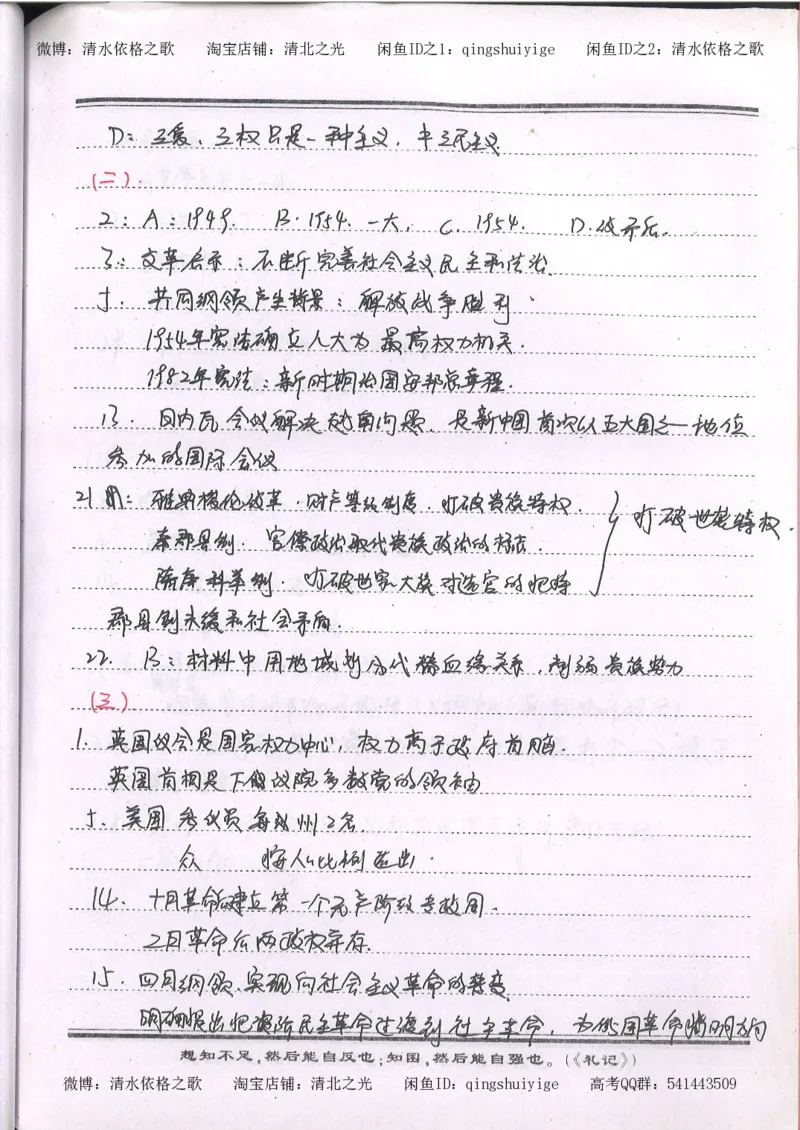 微博：清水依格之歌 淘宝店铺：清北之光 闲鱼ID之1：qingshuiyige 闲鱼ID之2：清水依格之歌
D：五宪、三权只是一种主义，
(二).
2：A：1949. B·1954.一大， C. 1954. D.
3：文革启示：不断完善社会主义民主和法治.
5. 共同纲领产生背景：解放战争胜利·
1954年宪法确立人大为最高权力机关.
1982年宪法：新时期治国安邦总章程.
13. 日内瓦会议解决越南问题，是新中国首次以五大国之一地位
参加的国际会议
21 雅典梭伦改革·财产等级制度，打破贵族特权.
秦郡县制·官僚政治取代贵族政治的标志. 打破世袭特权.
隋唐科举制·打破世家大族对选官的把持
郡县制未缓和社会矛盾.
22. B：材料中用地域划分代替血缘关系，削弱贵族势力
(三)
1. 英国议会是国家权力中心，权力高于政府首脑.
英国首相是下级议院多数党的领袖
5. 美国 参议员每州2名.
众 按人口比例选出·
14. 十月革命后建立第一个无产阶级专政国.
二月革命后两政权并存.
15. 四月纲领.实现向社会主义革命的转变.
明确提出把资阶民主革命过渡到社主革命，为俄国革命指明方向
想知不足,然后能自反也;知困,然后能自强也。(《礼记》)
微博：清水依格之歌 淘宝店铺：清北之光 闲鱼ID：qingshuiyige 高考QQ群：541443509